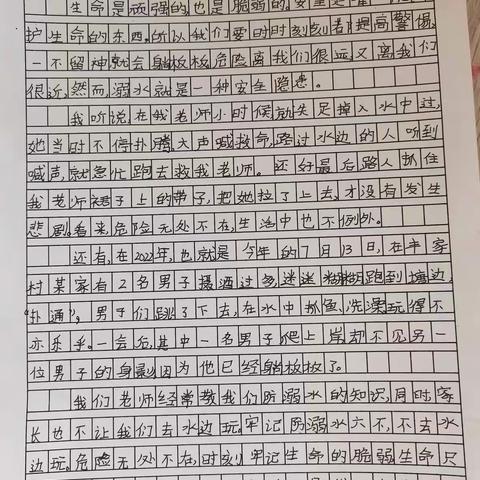 生命是顽强的,也是脆弱的,安全是
护生命的东西,所以我们要时时刻刻都提高警惕,
一不留神就会躺板板。危险离我们很远又离我们
很近,然而,溺水就是一种安全隐患。
我听说,在我老师小时候就失足掉入水中过,
她当时不停扑腾,大声喊救命,路过水边的人听到
喊声,就急忙跑去救我老师。还好最后路人抓住
我老师裙子上的带子,把她拉了上去,才没有发生
悲剧。看来危险无处不在,生活中也不例外。
还有,在2022年,也就是今年的7月13日,在辛家
村某家有2名男子摄酒过多,迷迷糊糊跑到塘边,
“扑通”,男子们跳了下去,在水中抓鱼、洗澡玩得不
亦乐乎。一会后,其中一名男子爬上岸,却不见另一
位男子的身影,因为他已经躺板板了。
我们老师经常教我们防溺水的知识,同时家
长也不让我们去水边玩。牢记防溺水六不,不去水
边玩。危险无处不在,时刻牢记生命的脆弱,生命只